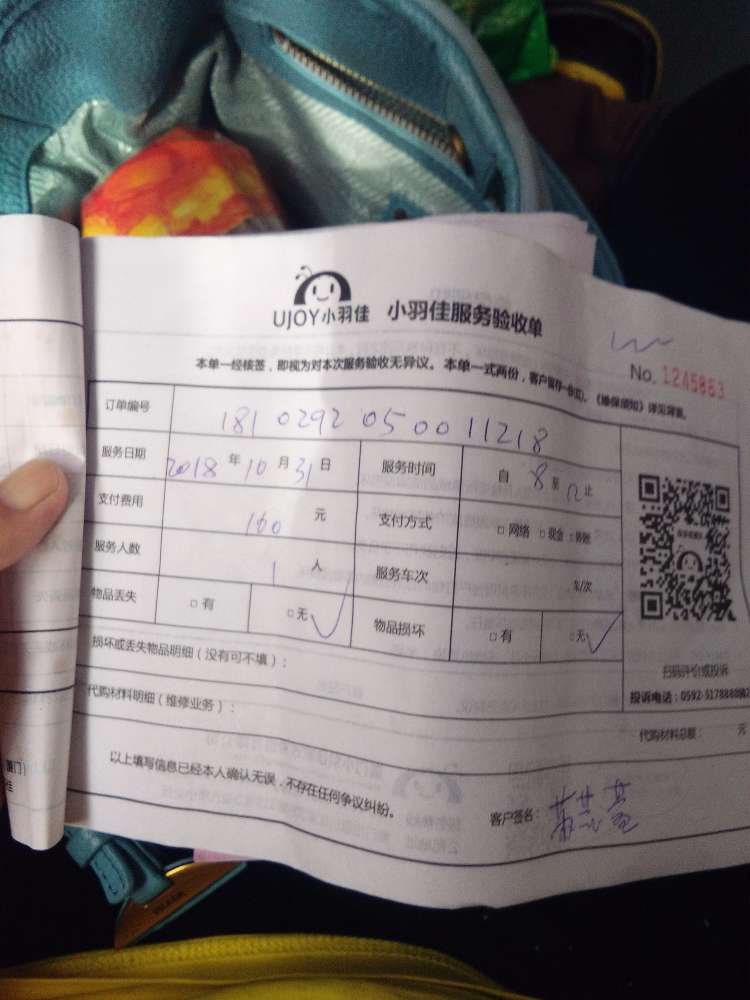 UJOY小羽佳 小羽佳服务验收单
本单一经核签，即视为对本次服务验收无异议。本单一式两份，客户留存一份 《维保须知》详见背面。
No. 1245863
订单编号 181029205001 1218
服务日期 2018 年 10 月 31 日 服务时间 自 8 至 12 止
支付费用 160 元 支付方式 □网络 □现金 □转账
服务人数 1 人 服务车次 车/次
物品丢失 □有 □无 √ 物品损坏 □有 □无 √
损坏或丢失物品明细（没有可不填）：
扫码评价或投诉
投诉电话：0592-5178888
代购材料明细（维修业务）：
代购材料总额： 元
以上填写信息已经本人确认无误，不存在任何争议纠纷。
客户签名：